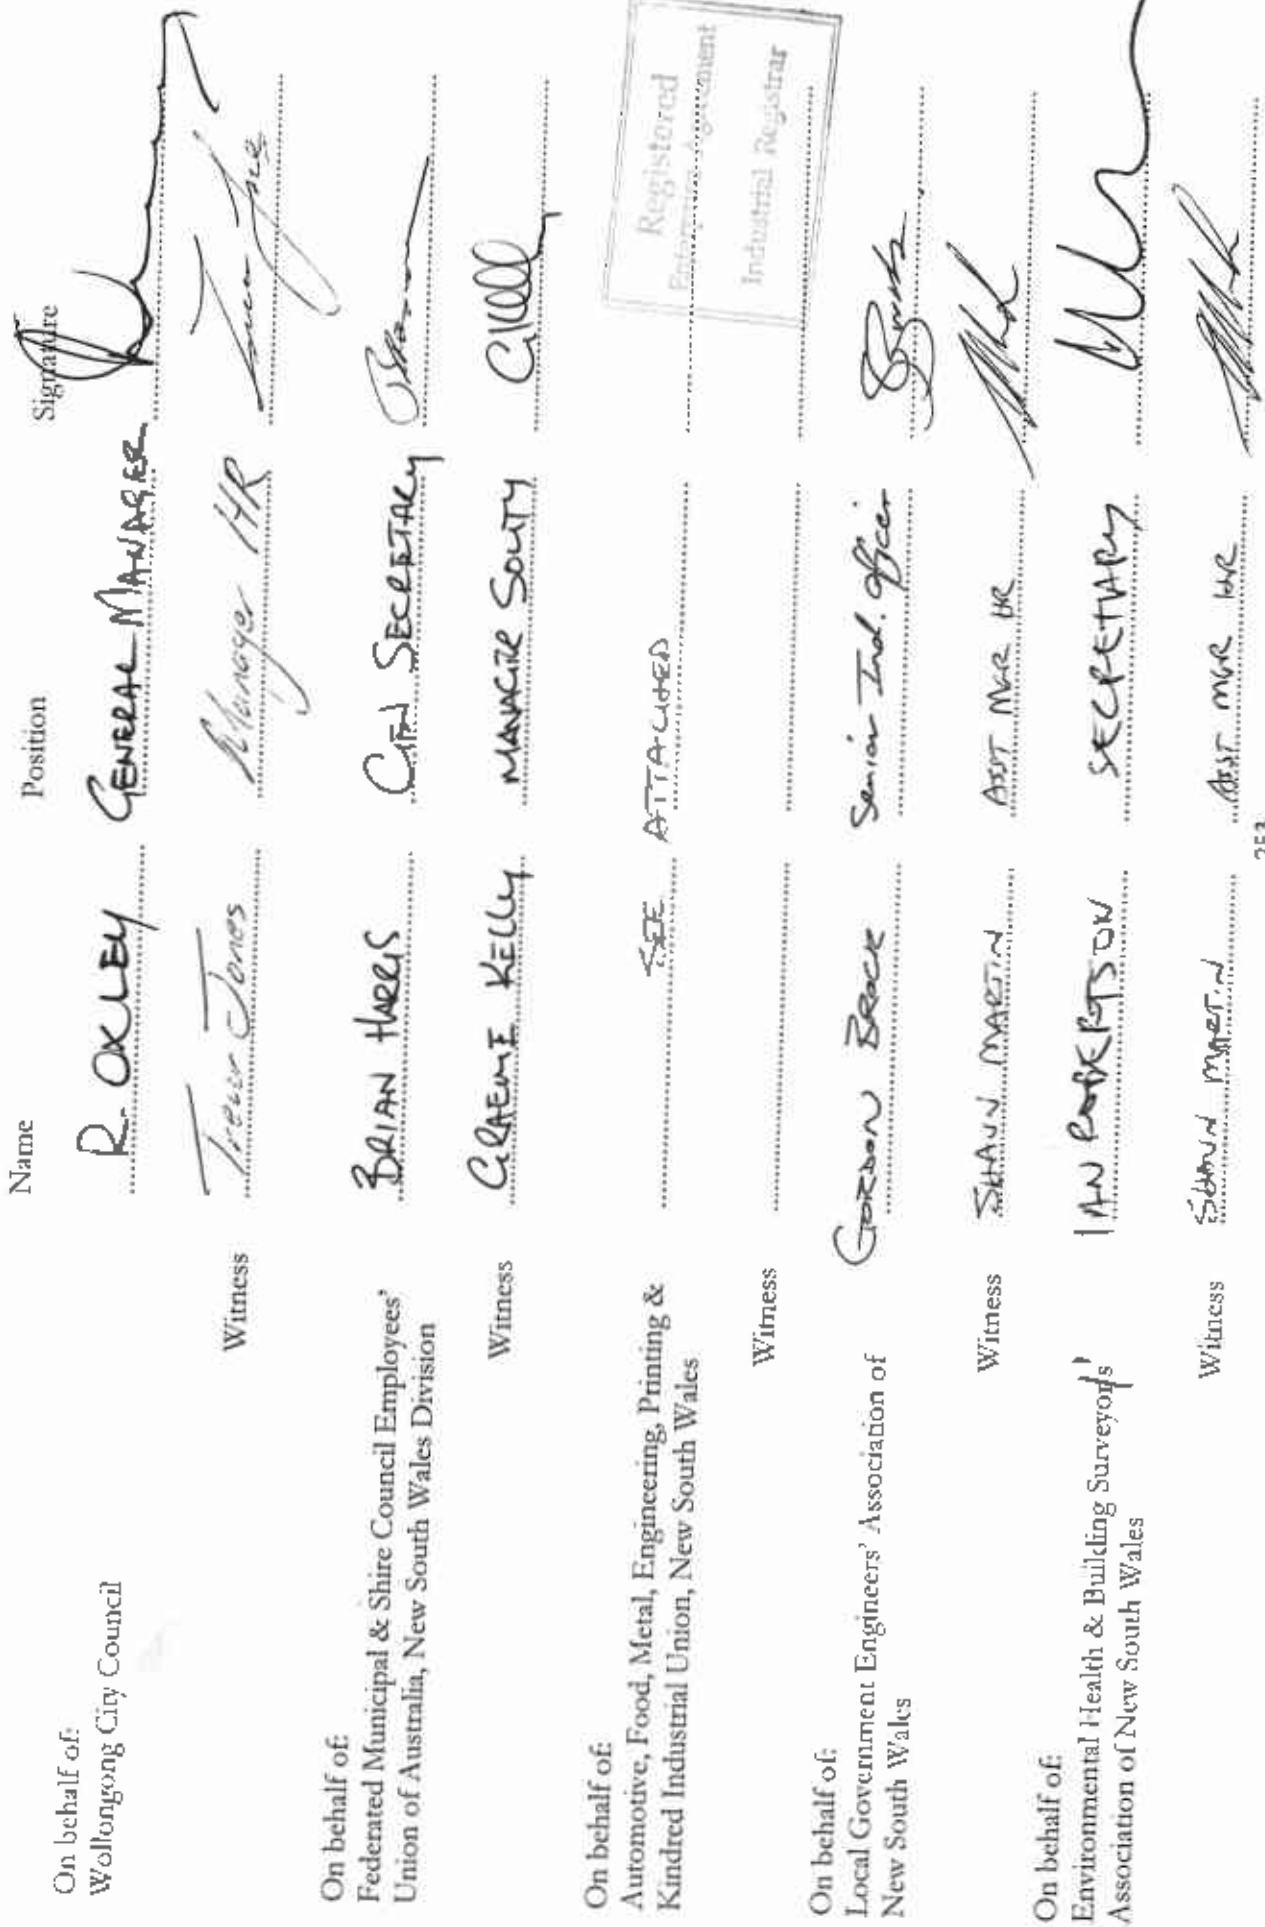 Name Position Signature
On behalf of:
Wollongong City Council
R. OXLEY GENERAL MANAGER
Witness Trevor Jones Manager HR
On behalf of:
Federated Municipal & Shire Council Employees'
Union of Australia, New South Wales Division
BRIAN HARRIS GEN SECRETARY
Witness GRAEME KELLY MANAGER SOUTH
On behalf of:
Automotive, Food, Metal, Engineering, Printing &
Kindred Industrial Union, New South Wales
SEE ATTACHED
Witness
Registered
Enterprise Agreement
Industrial Registrar
On behalf of:
Local Government Engineers' Association of
New South Wales
GORDON BROCK Senior Ind. Officer
Witness SHAUN MARTIN ASST MGR HR
On behalf of:
Environmental Health & Building Surveyors'
Association of New South Wales
IAN ROBERTSON SECRETARY
Witness SHAUN MARTIN ASST MGR HR
253